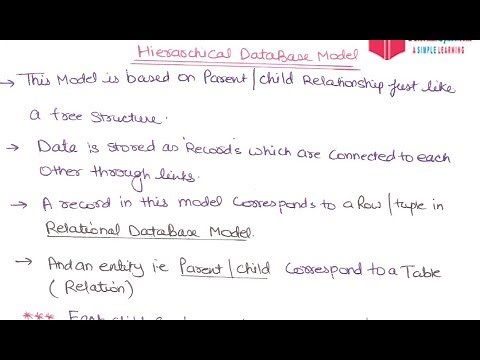 A SIMPLE LEARNING
Hierarchical Database Model
→ This Model is based on Parent/child Relationship Just like
a tree structure.
→ Data is stored as Records which are connected to each
Other through links.
→ A record in this model corresponds to a Row/tuple in
Relational Database Model.
→ And an entity i.e Parent/child Correspond to a Table
(Relation)
***